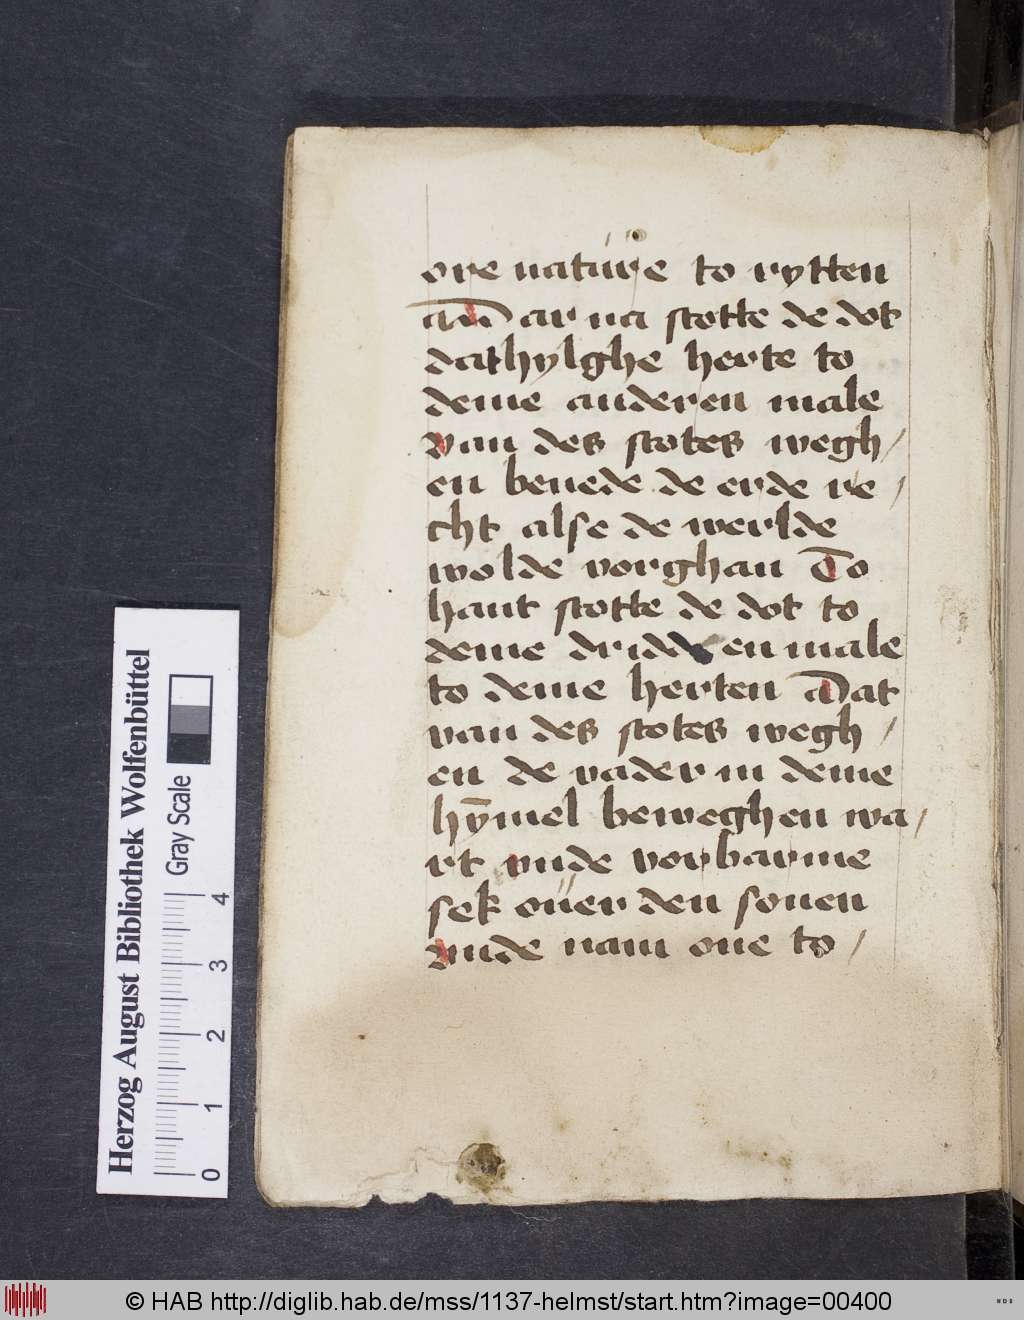 ore nature to rytten
dar na stotte de dot
dat hylghe herte to
deme anderen male
van des stotes wegh/
en beuede de erde re/
cht alse de werlde
wolde vorghan To
hant stotte de dot to
deme dridden male
to deme herten Dat
van des stotes wegh/
en de vader in deme
hȳmel beweghen wa/
rt vnde vorbarme
sek ouer den sonen
vnde nam one to/
Herzog August Bibliothek Wolfenbüttel
Gray Scale
0 1 2 3 4
© HAB http://diglib.hab.de/mss/1137-helmst/start.htm?image=00400